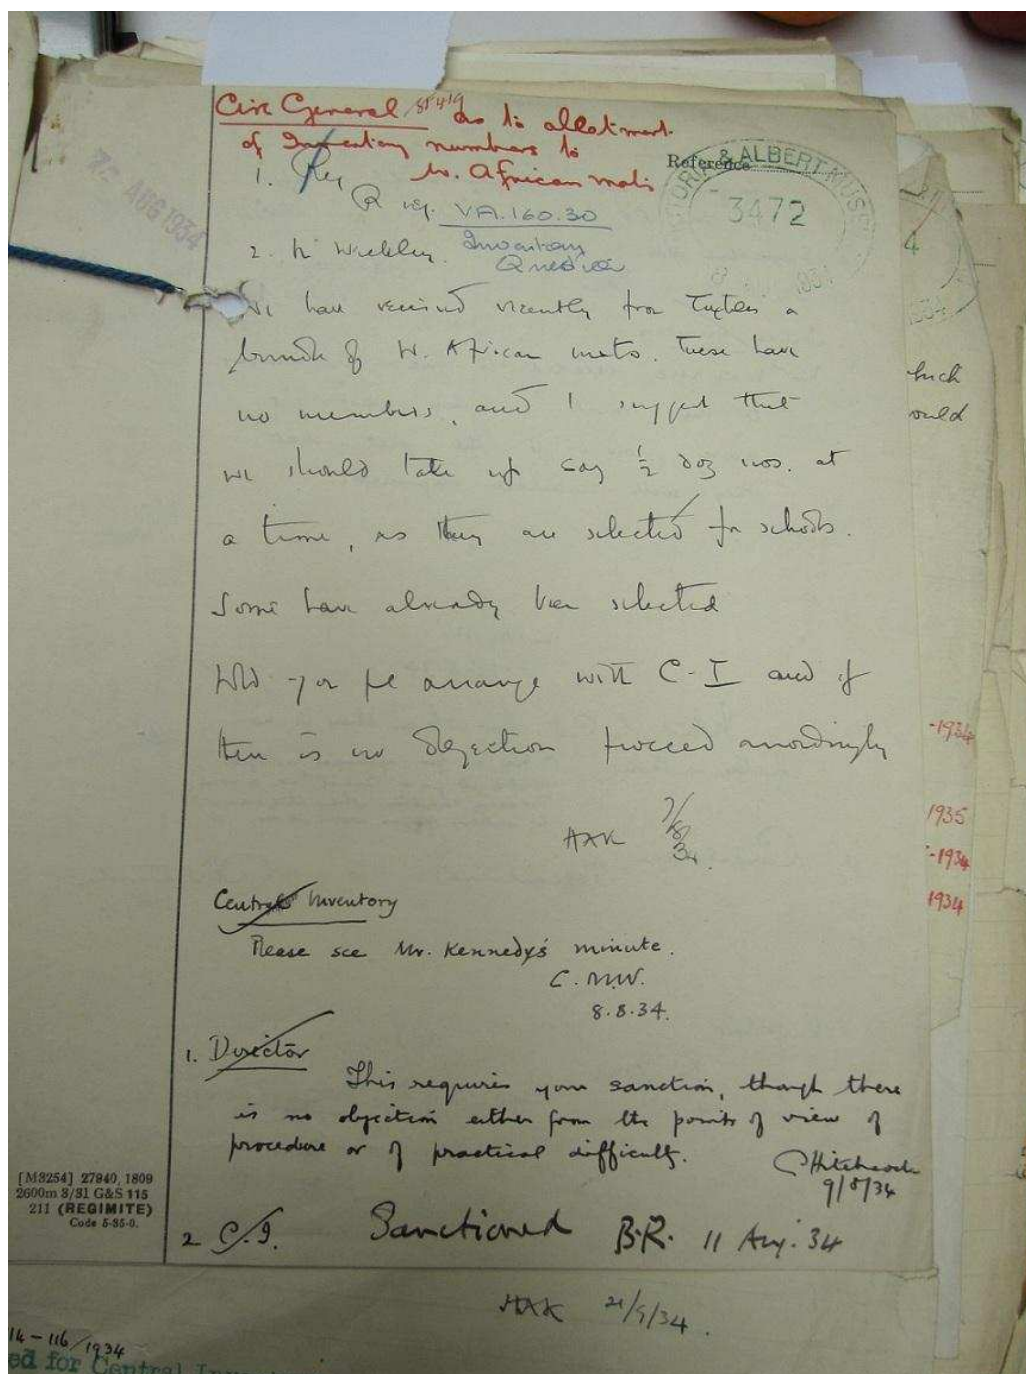 Circ General as to allotment
of Inventory numbers to
W. African mats
Reference
& ALBERT MUS
3472
1. Reg
R reg. VA.160.30
2. Mr Weekley. Inventory
Question
AUG 1934
We have received recently from Textiles a
bundle of W. African mats. These have
no numbers, and I suggest that
we should take up say ½ doz nos. at
a time, as they are selected for schools.
Some have already been selected
Wld you pl arrange with C-I and if
there is no objection proceed accordingly
HAK 7/8/34
Central Inventory
Please see Mr. Kennedy's minute.
C.M.W.
8.8.34.
1. Director
This requires your sanction, though there
is no objection either from the points of view of
procedure or of practical difficulty.
Hitchcock
9/8/34
2 C.I. Sanctioned B.R. 11 Aug. 34
[M3254] 27940, 1809
2600m 3/31 G&S 115
211 (REGIMITE)
Code 5-35-0.
HAK 21/9/34.
14-116/1934
ed for Central
hich
ould
-1934
1935
-1934
1934